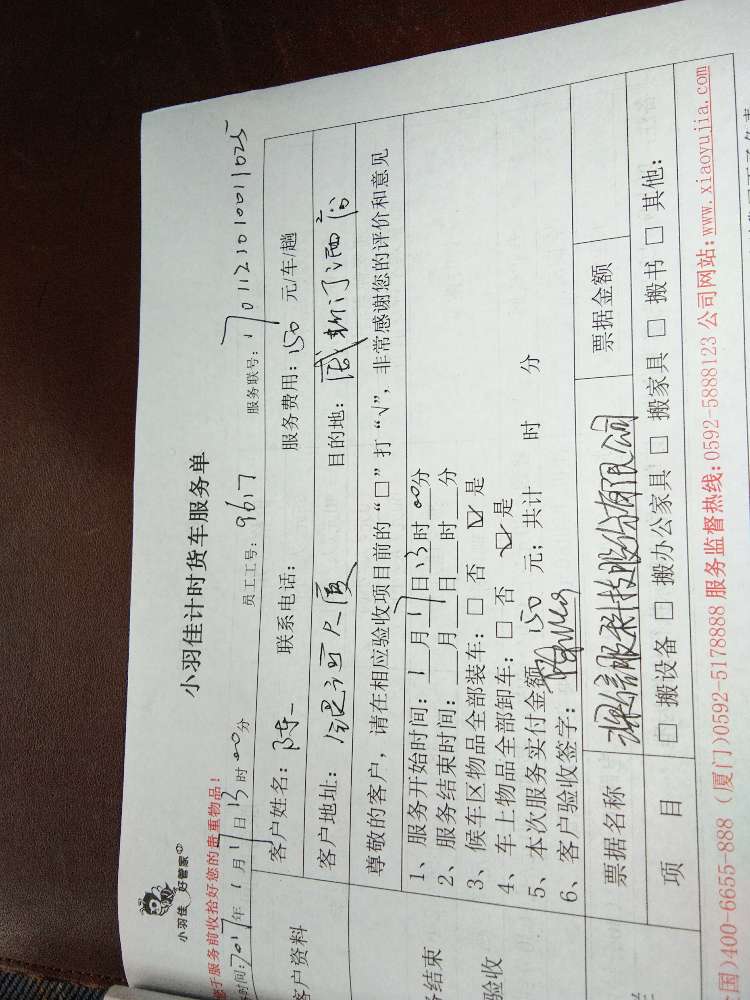 小羽佳 好管家
小羽佳计时货车服务单
于服务前收拾好您的贵重物品！
时间：2017年1月17日13时00分 员工工号：9617 服务联号：1701123010011025
客户资料
客户姓名：陈 联系电话： 服务费用：150 元/车/趟
客户地址：大厦 目的地：酒店
尊敬的客户，请在相应验收项目前的“□”打“√”，非常感谢您的评价和意见
结束
验收
1、服务开始时间：1月17日13时00分
2、服务结束时间：__月__日__时__分
3、候车区物品全部装车：□ 否 ☑ 是
4、车上物品全部卸车：□ 否 ☑ 是
5、本次服务实付金额 150 元；共计 时 分
6、客户验收签字：
票据名称 深信服科技股份有限公司 票据金额
项 目 □ 搬设备 □ 搬办公家具 □ 搬家具 □ 搬书 □ 其他：
国)400-6655-888 (厦门)0592-5178888 服务监督热线：0592-5888123 公司网站：www.xiaoyujia.com